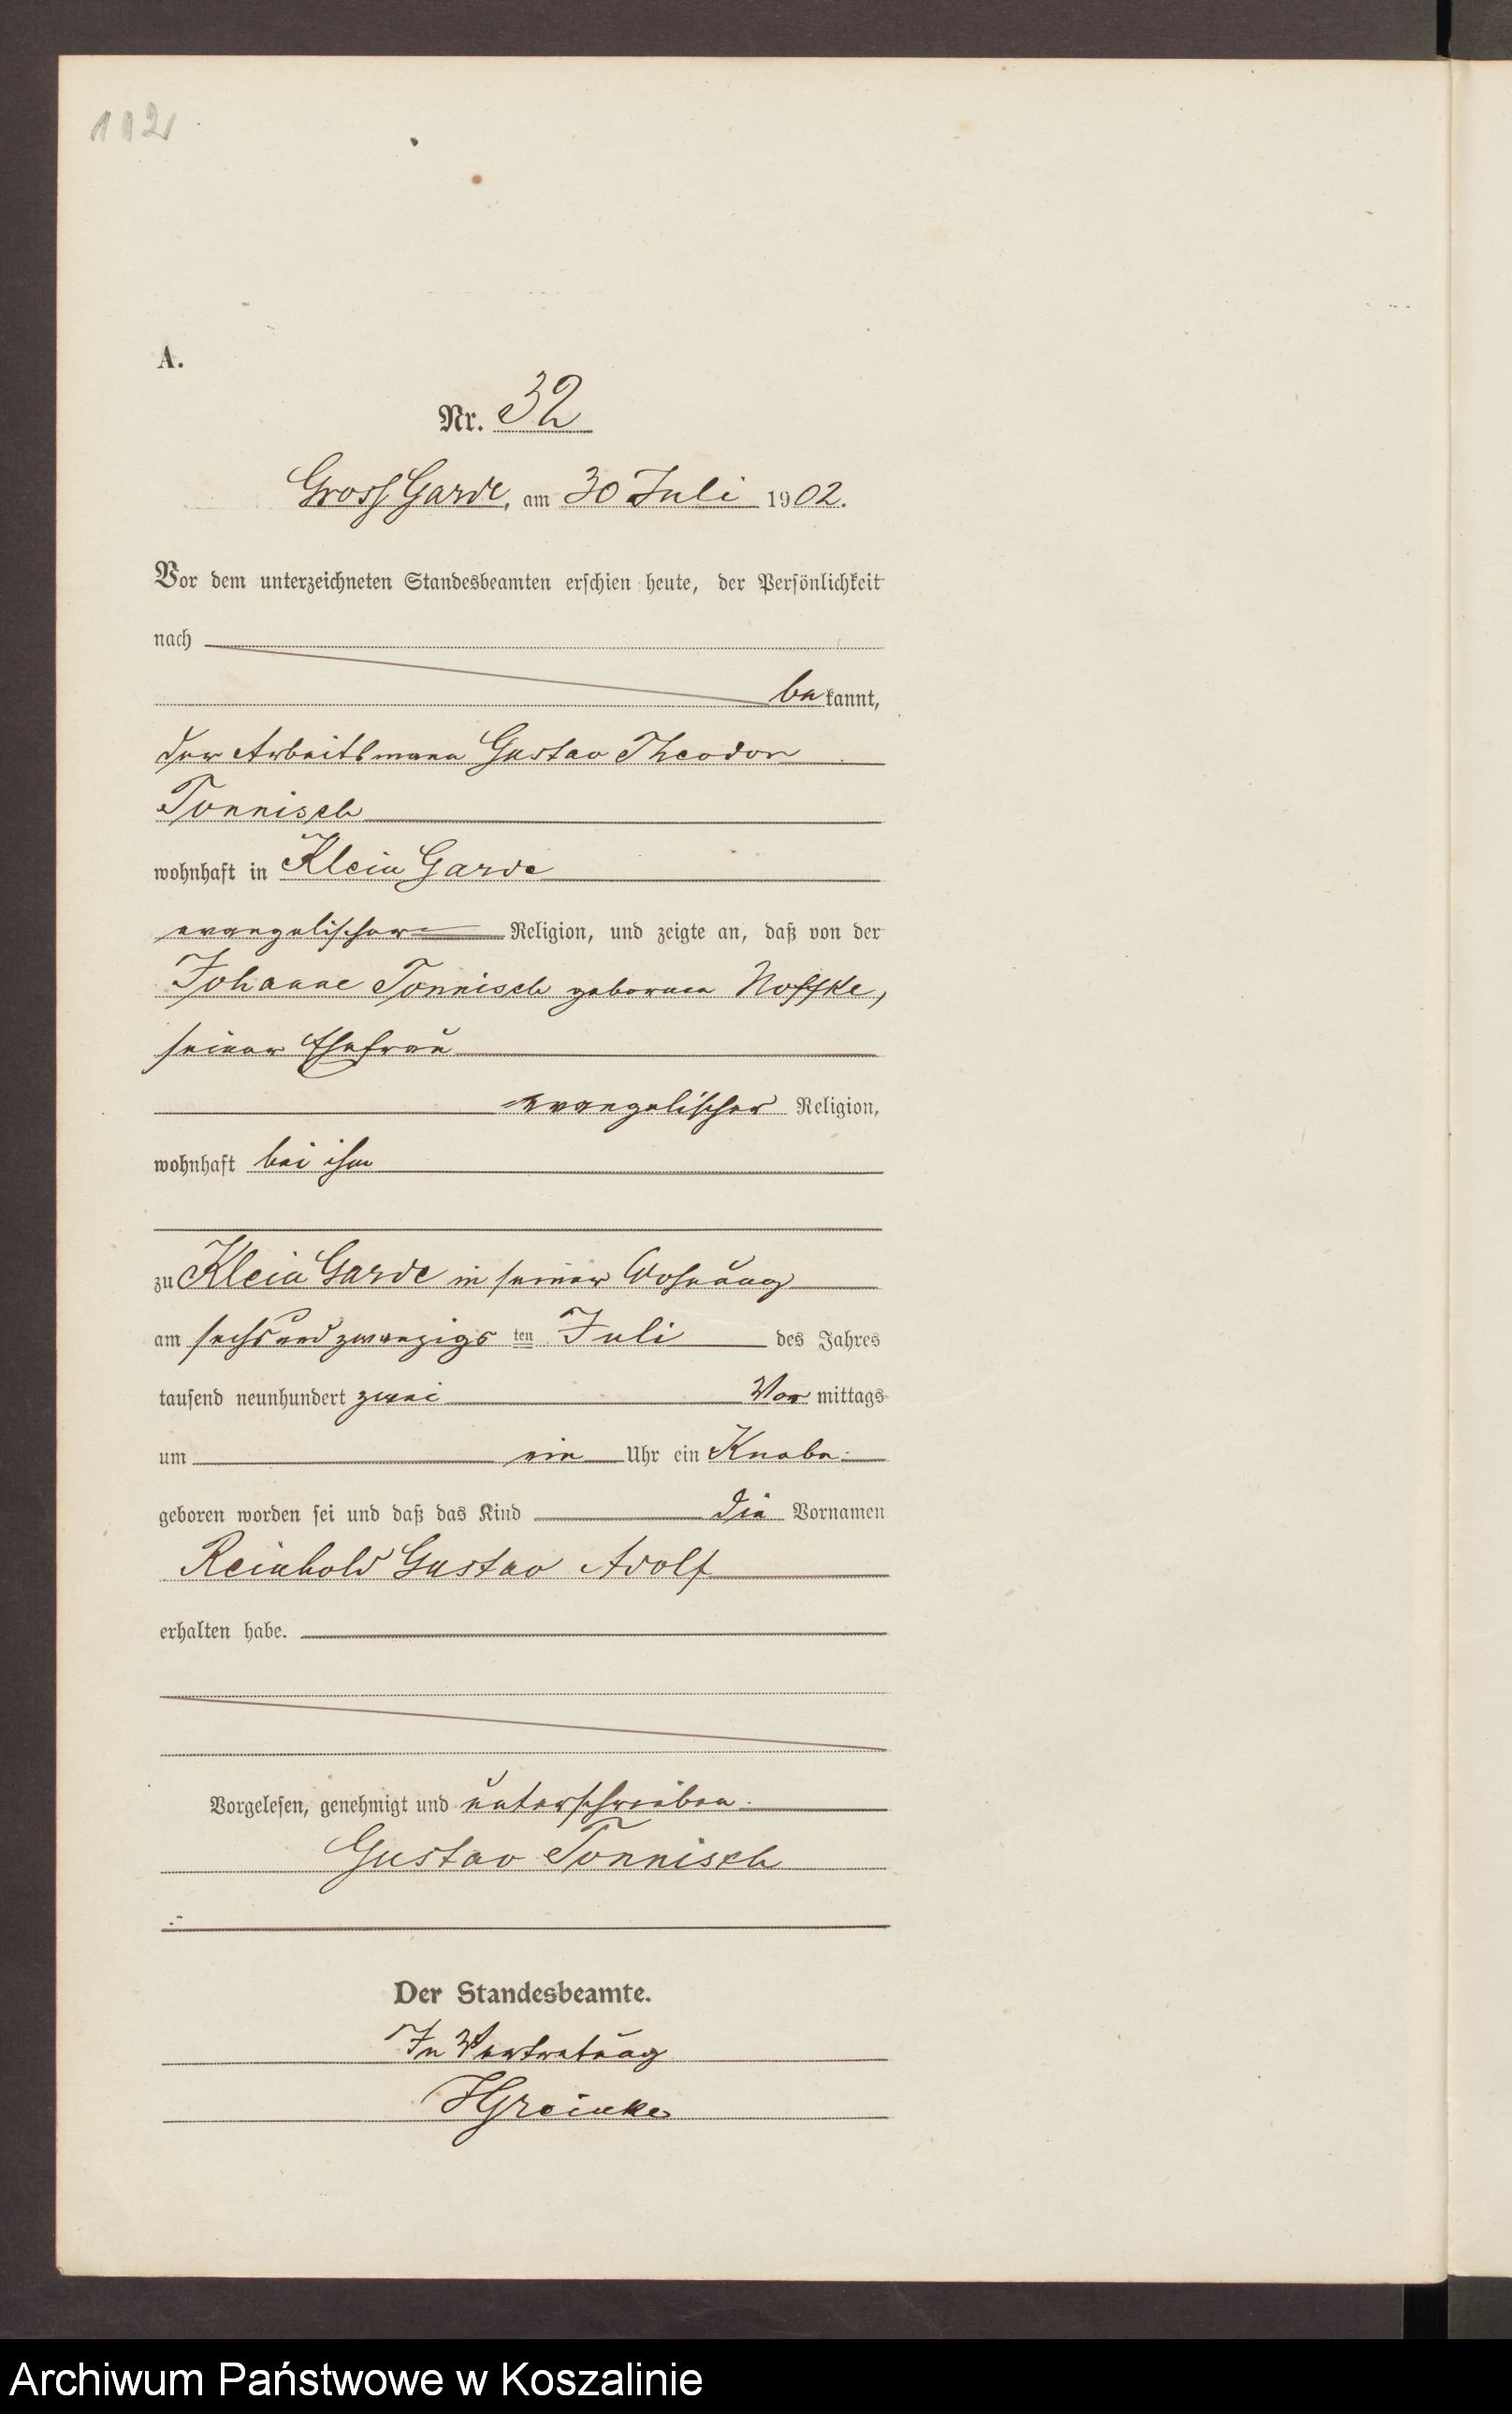 112
A.
Nr. 32
Gross Garde, am 30 Juli 1902.
Vor dem unterzeichneten Standesbeamten erschien heute, der Persönlichkeit
nach
bekannt,
der Arbeitsmann Gustav Theodor
Tonnisch
wohnhaft in Klein Garde
evangelischer Religion, und zeigte an, daß von der
Johanne Tonnisch geborenen Noffke,
seiner Ehefrau
evangelischer Religion,
wohnhaft bei ihm
zu Klein Garde in seiner Wohnung
am sechsundzwanzigsten Juli des Jahres
tausend neunhundert zwei Vormittags
um ein Uhr ein Knabe
geboren worden sei und daß das Kind die Vornamen
Reinhold Gustav Adolf
erhalten habe.
Vorgelesen, genehmigt und unterschrieben.
Gustav Tonnisch
Der Standesbeamte.
In Vertretung
HGreinke
Archiwum Państwowe w Koszalinie